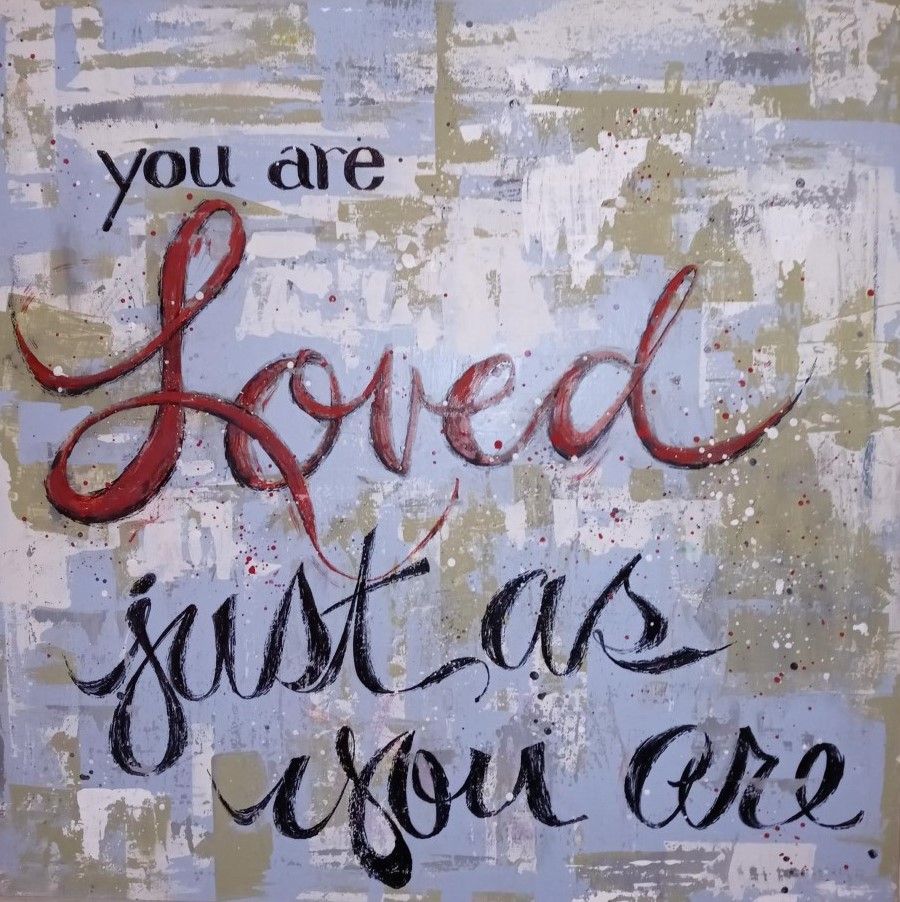 you are
Loved
just as
you are